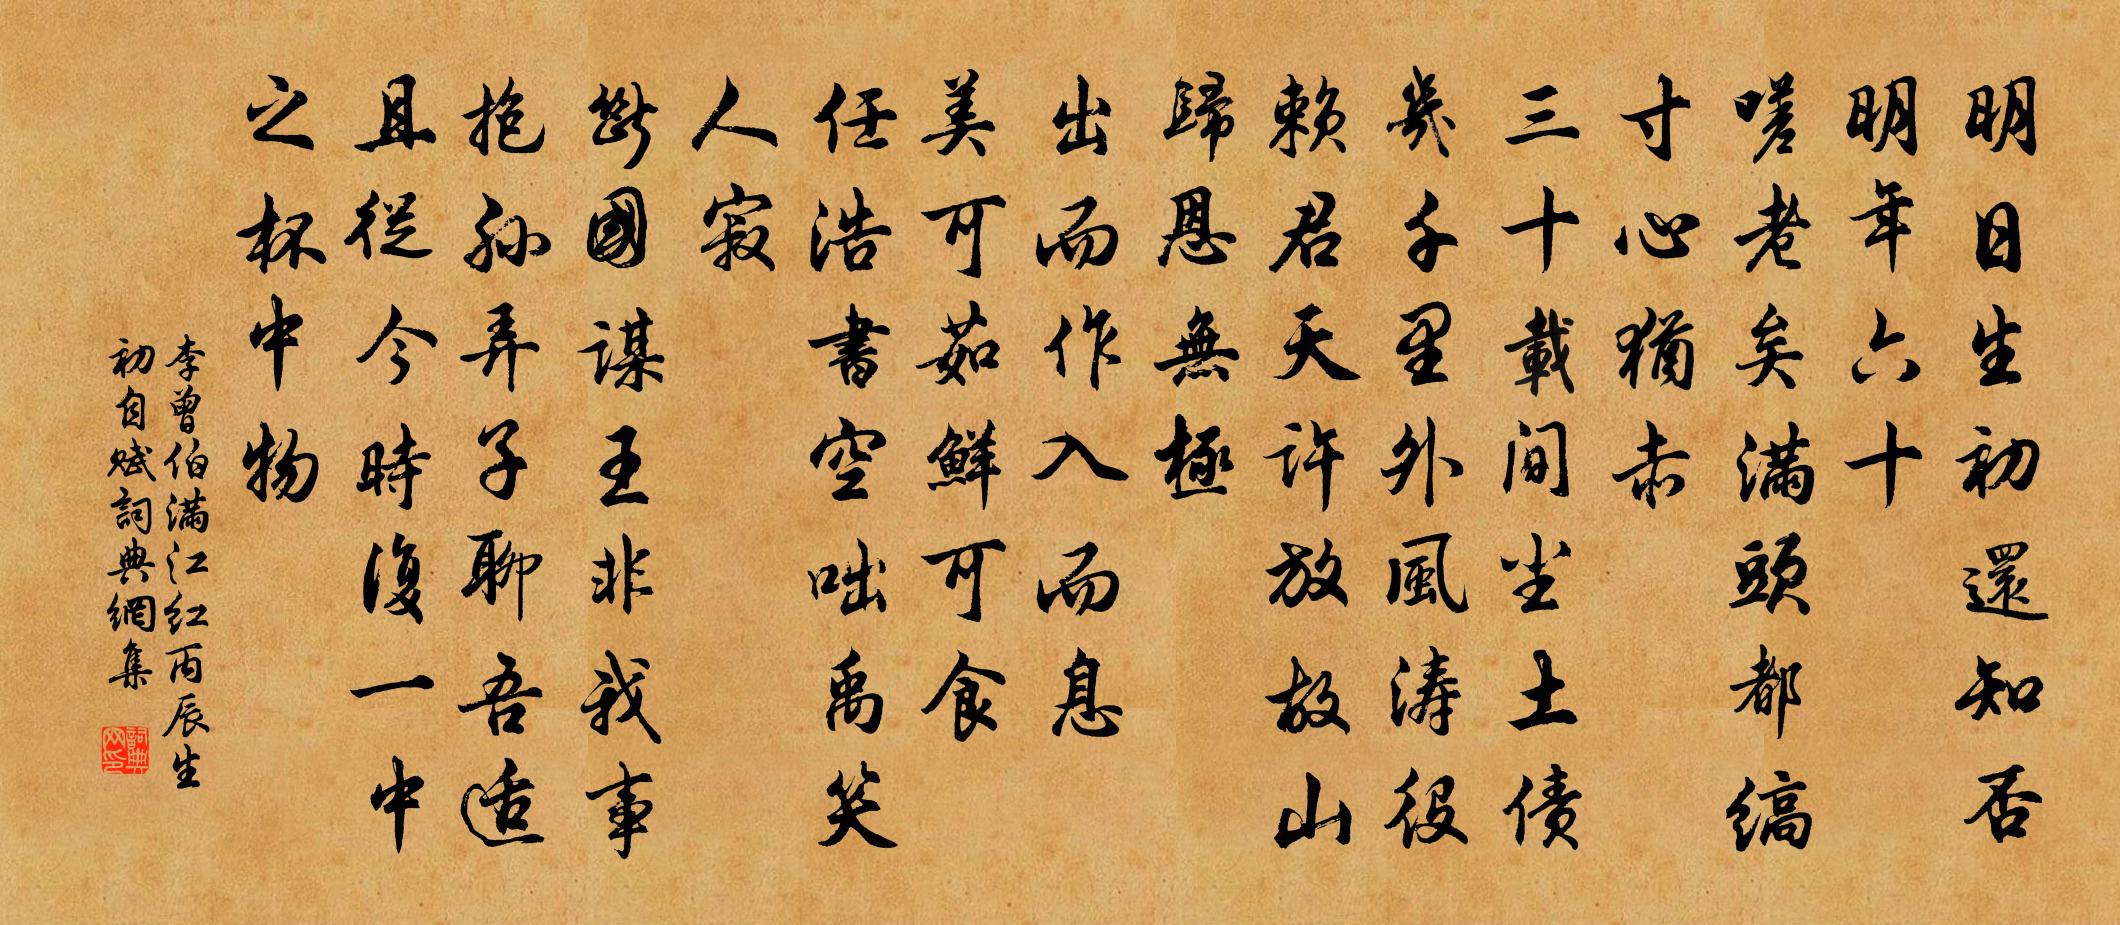 明日生初還知否
明年六十
嗟老矣滿頭都縞
寸心猶赤
三十載間尘土债
幾千里外風涛役
赖君天許放放山
歸恩無極
出而作入而息
美可茹鮮可食
任浩書空咄禹笑
人寂
斷國謀王非我事
抱孙弄子聊吾适
且從今時復一中
之杯中物
李曾伯满江红丙辰生
初自赋詞典網集
詞典网印